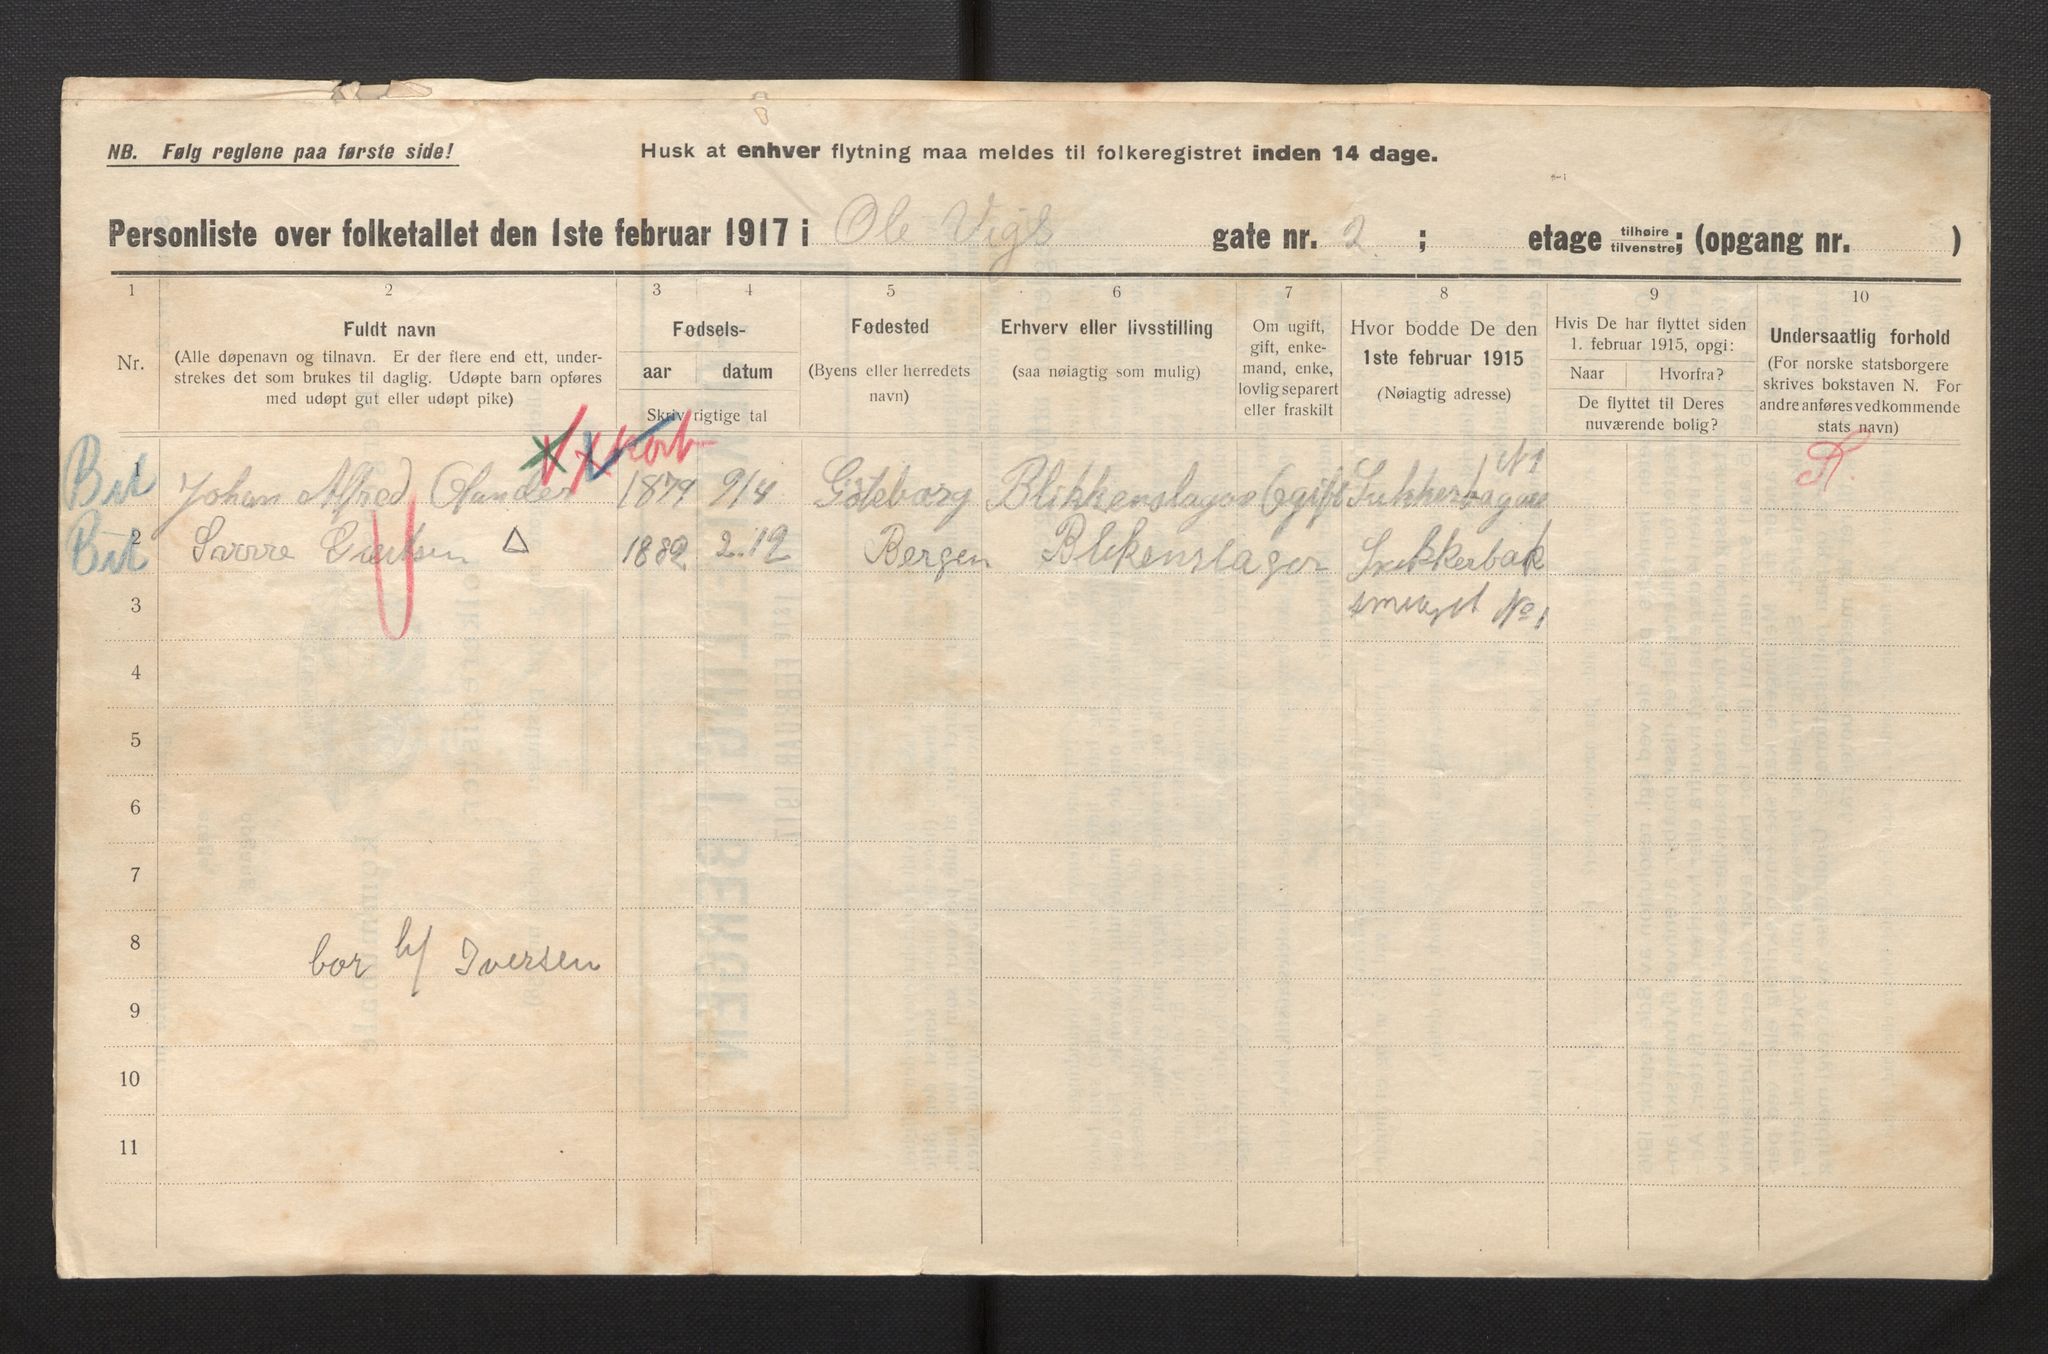 NB. Følg reglene paa første side!
Husk at enhver flytning maa meldes til folkeregistret inden 14 dage.
Personliste over folketallet den 1ste februar 1917 i Ole Vigs gate nr. 2 ; etage tilhøire tilvenstre; (opgang nr. )
1 2 3 4 5 6 7 8 9 10
Nr.
Fuldt navn
(Alle døpenavn og tilnavn. Er der flere end ett, under-
strekes det som brukes til daglig. Udøpte barn opføres
med udøpt gut eller udøpt pike)
Fødsels-
aar datum
Skriv rigtige tal
Fødested
(Byens eller herredets
navn)
Erhverv eller livsstilling
(saa nøiagtig som mulig)
Om ugift,
gift, enke-
mand, enke,
lovlig separert
eller fraskilt
Hvor bodde De den
1ste februar 1915
(Nøiagtig adresse)
Hvis De har flyttet siden
1. februar 1915, opgi:
Naar Hvorfra?
De flyttet til Deres
nuværende bolig?
Undersaatlig forhold
(For norske statsborgere
skrives bokstaven N. For
andre anføres vedkommende
stats navn)
kort
Bit 1 Johan Alfred 1879 9/4 Göteborg Blikkenslager gift No 1
Bit 2 1882 2.12 Bergen Blikenslager Sukkerbak
3 No 1
4
5
6
7
8 bor h/ Iversen
9
10
11